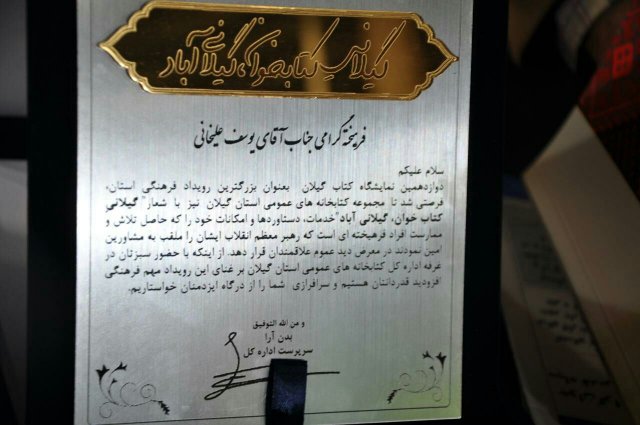 گیلانی کتابخوان، گیلانی آباد
فرهیخته گرامی جناب آقای یوسف علیخانی
سلام علیکم
دوازدهمین نمایشگاه کتاب گیلان بعنوان بزرگترین رویداد فرهنگی استان،
فرصتی شد تا مجموعه کتابخانه های عمومی استان گیلان نیز با شعار" گیلانی
کتاب خوان، گیلانی آباد"خدمات، دستاوردها و امکانات خود را که حاصل تلاش و
ممارست افراد فرهیخته ای است که رهبر معظم انقلاب ایشان را ملقب به مشاورین
امین نمودند در معرض دید عموم علاقمندان قرار دهد. از اینکه با حضور سبزتان در
غرفه اداره کل کتابخانه های عمومی استان گیلان بر غنای این رویداد مهم فرهنگی
افزودید قدردانتان هستیم و سرافرازی شما را از درگاه ایزدمنان خواستاریم.
و من الله التوفیق
بدن آرا
سرپرست اداره کل